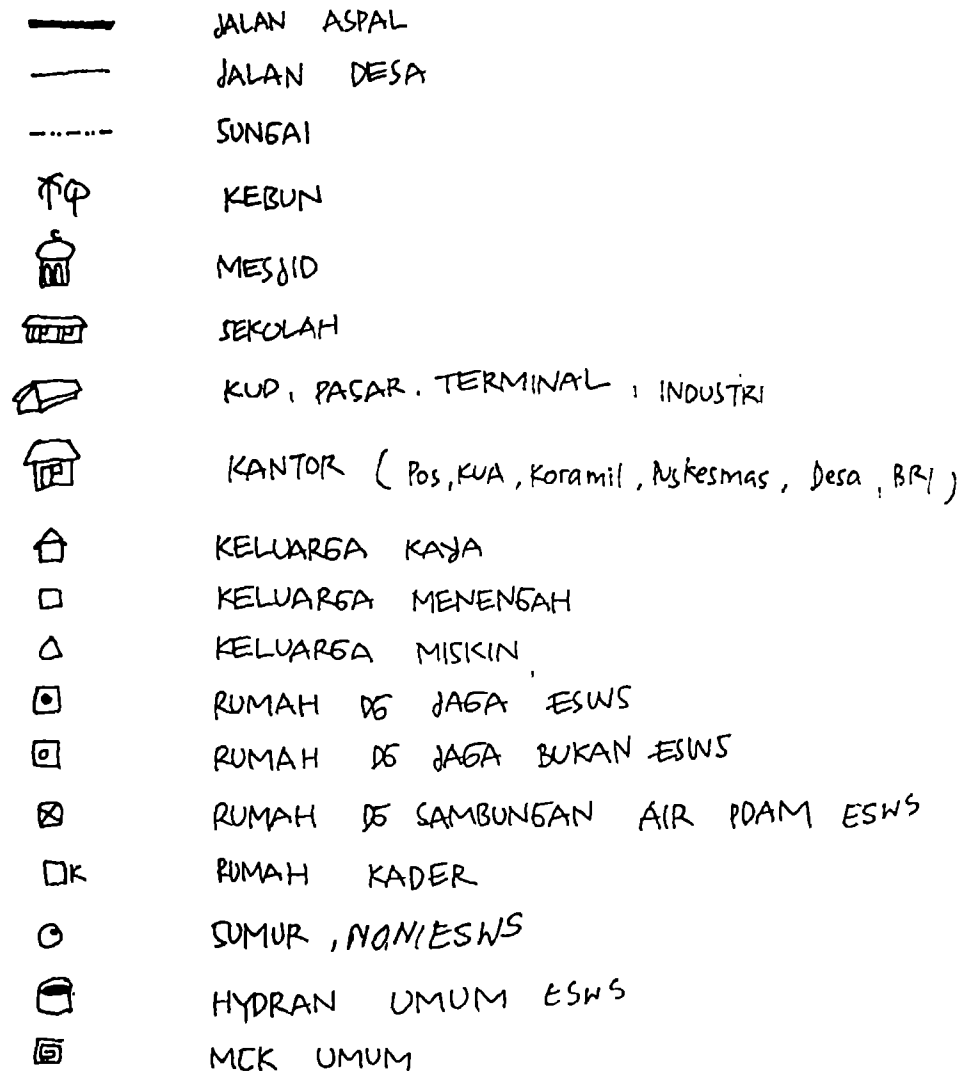 JALAN ASPAL
JALAN DESA
SUNGAI
KEBUN
MESJID
SEKOLAH
KUD, PASAR. TERMINAL, INDUSTRI
KANTOR (Pos, KUA, Koramil, Puskesmas, Desa, BRI)
KELUARGA KAYA
KELUARGA MENENGAH
KELUARGA MISKIN
RUMAH DG JAGA ESWS
RUMAH DG JAGA BUKAN ESWS
RUMAH DG SAMBUNGAN AIR PDAM ESWS
K RUMAH KADER
SUMUR, NON/ESWS
HYDRAN UMUM ESWS
MCK UMUM